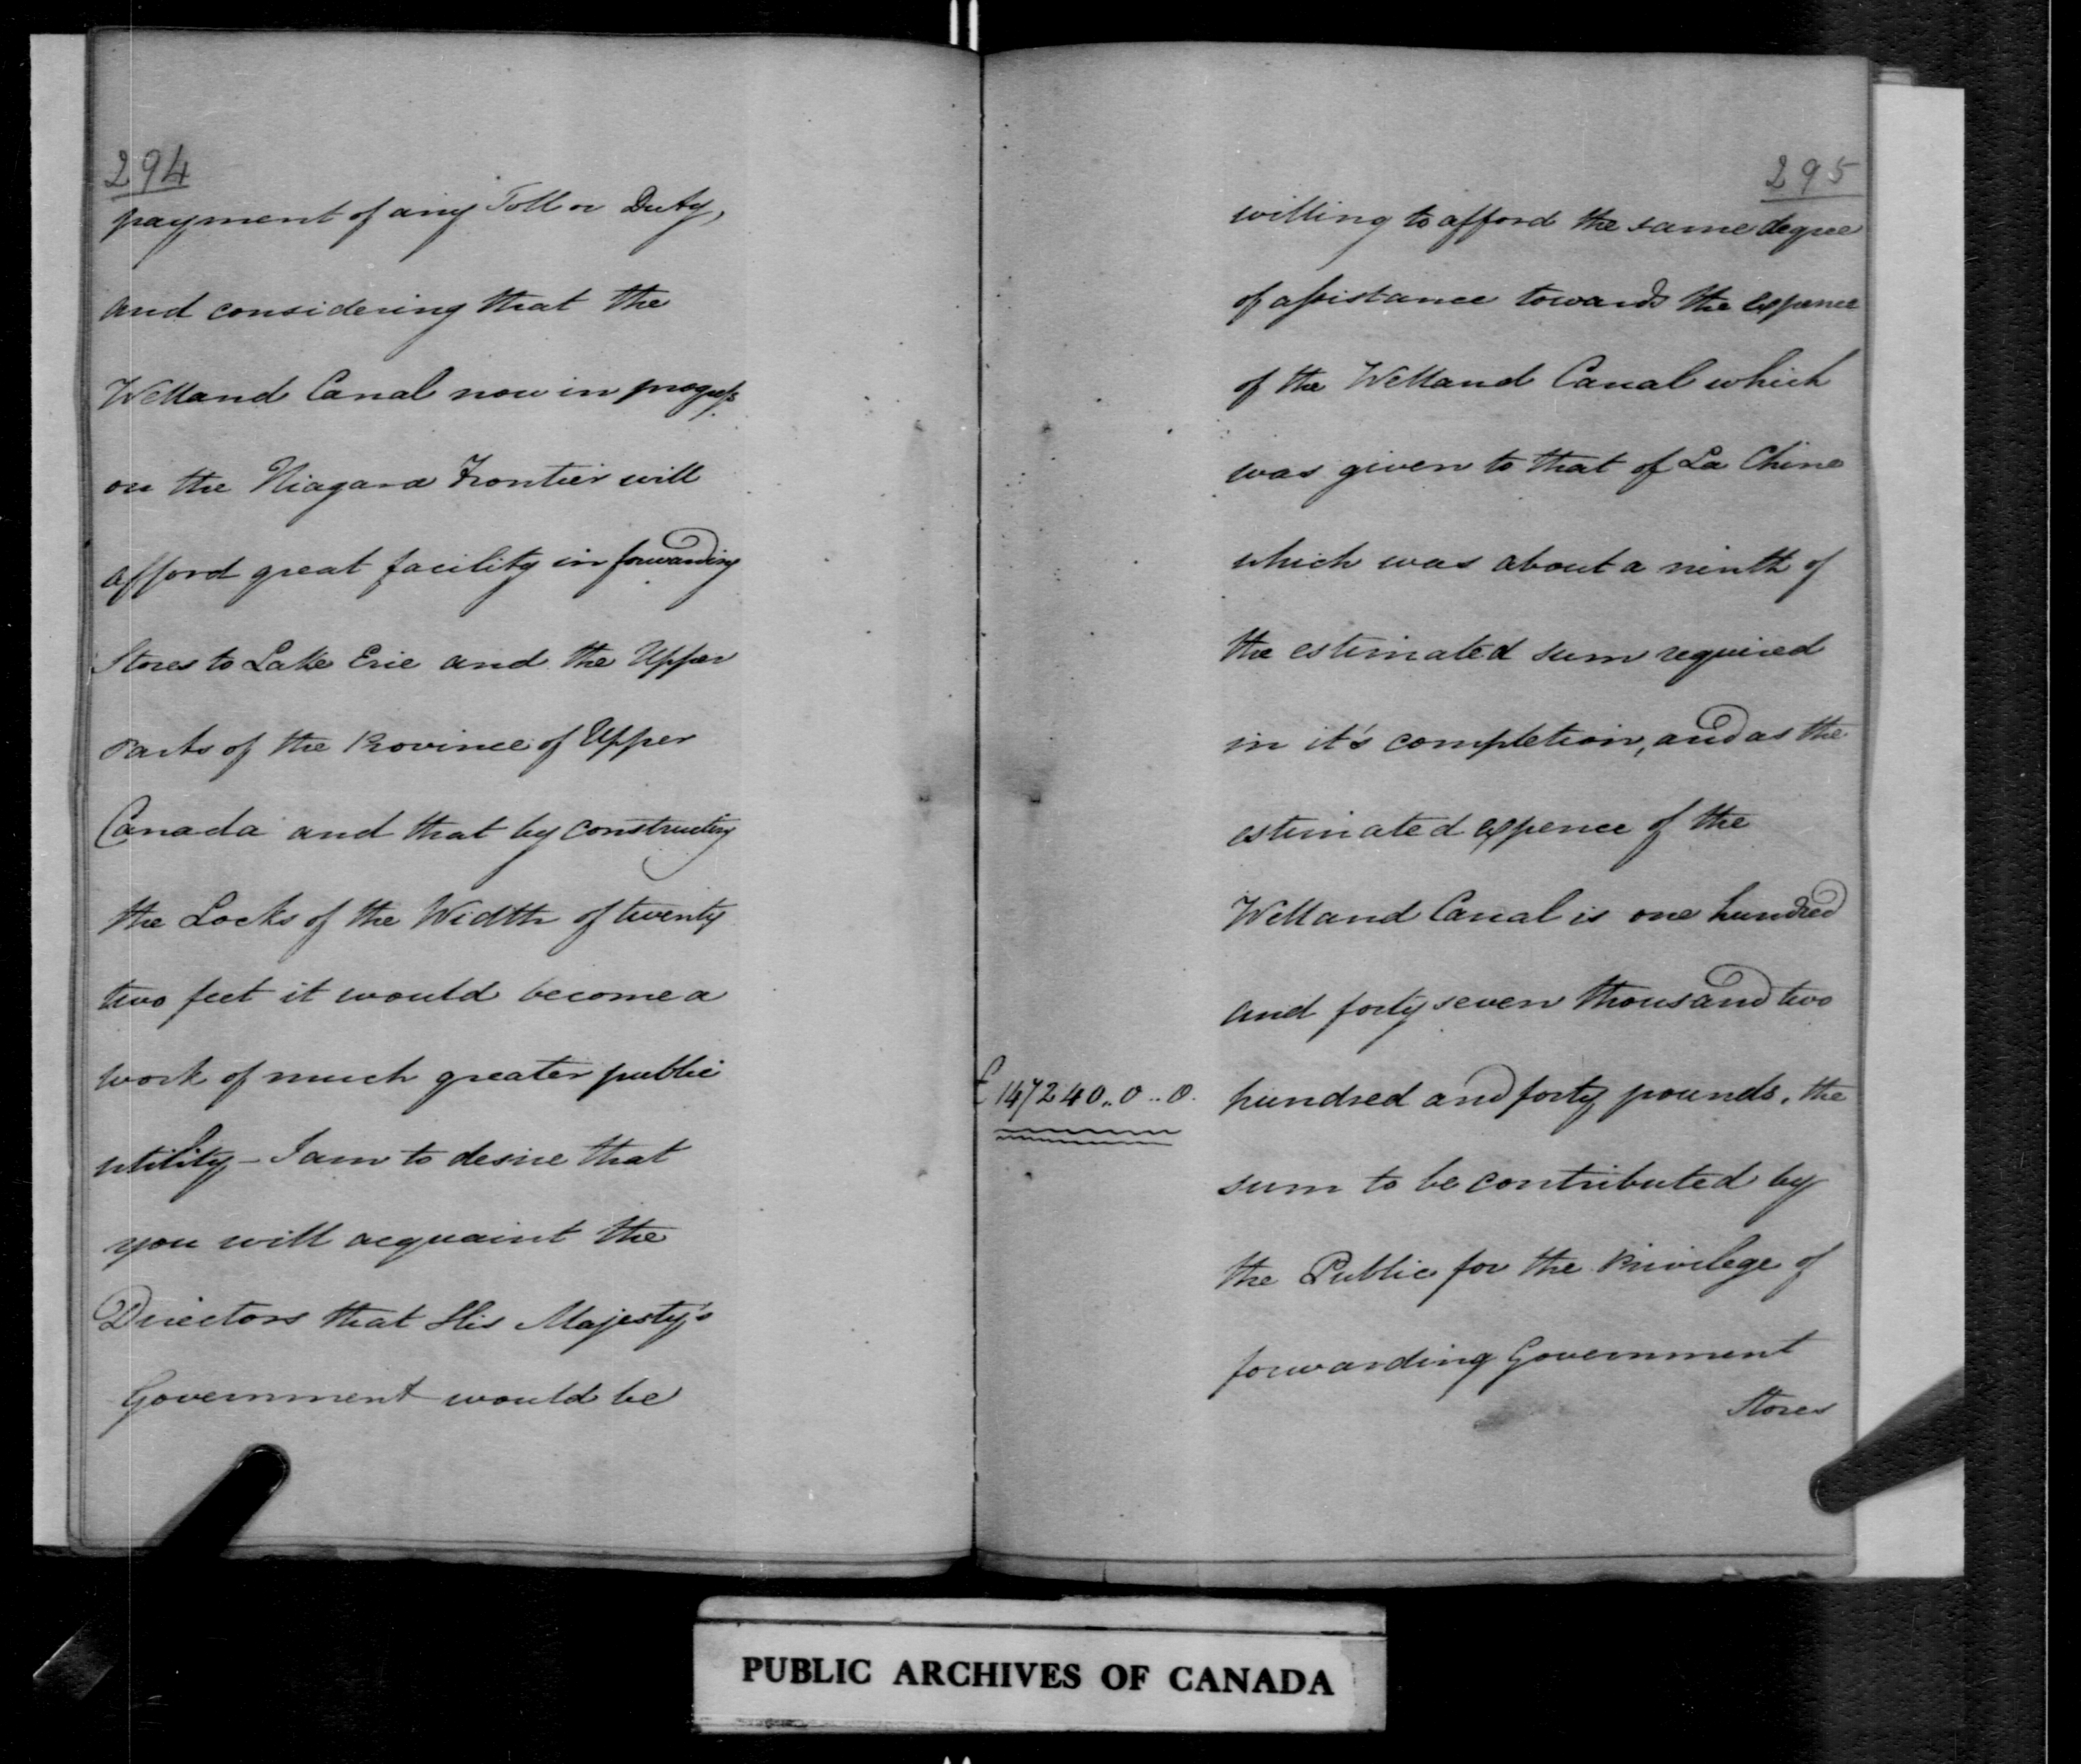 294
payment of any Toll or Duty,
and considering that the
Welland Canal now in progress
on the Niagara Frontier will
afford great facility in forwarding
Stores to Lake Erie and the Upper
Parts of the Province of Upper
Canada and that by constructing
the Locks of the Width of twenty
two feet it would become a
work of much greater public
utility – I am to desire that
you will acquaint the
Directors that His Majesty's
Government would be
295
willing to afford the same degree
of assistance towards the expence
of the Welland Canal which
was given to that of La Chine
which was about a ninth of
the estimated sum required
in it's completion, and as the
estimated expence of the
Welland Canal is one hundred
and forty seven thousand two
£147240..0..0. hundred and forty pounds, the
sum to be contributed by
the Public for the Privilege of
forwarding Government
Stores
PUBLIC ARCHIVES OF CANADA